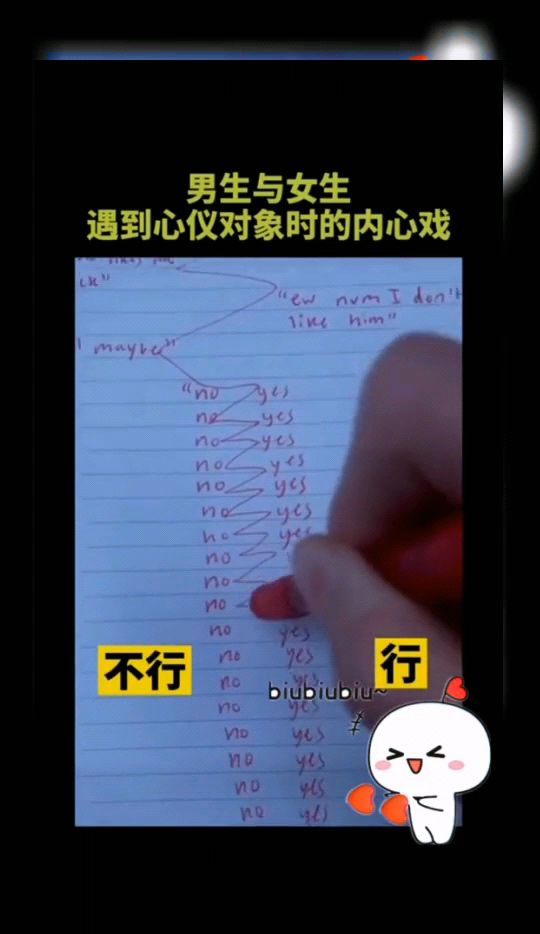 男生与女生
遇到心仪对象时的内心戏
"ew num I don't
like him"
maybe"
"no yes
no yes
no yes
no yes
no yes
no yes
no yes
no
no
no
no yes
no yes
no yes
no yes
no yes
no yes
no yes
no yes
不行
行
biubiubiu~